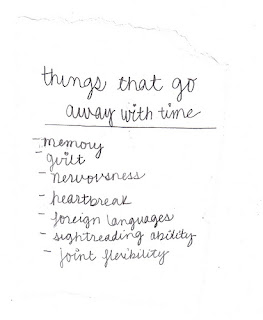 things that go
away with time
- memory
- guilt
- nervousness
- heartbreak
- foreign languages
- sightreading ability
- joint flexibility